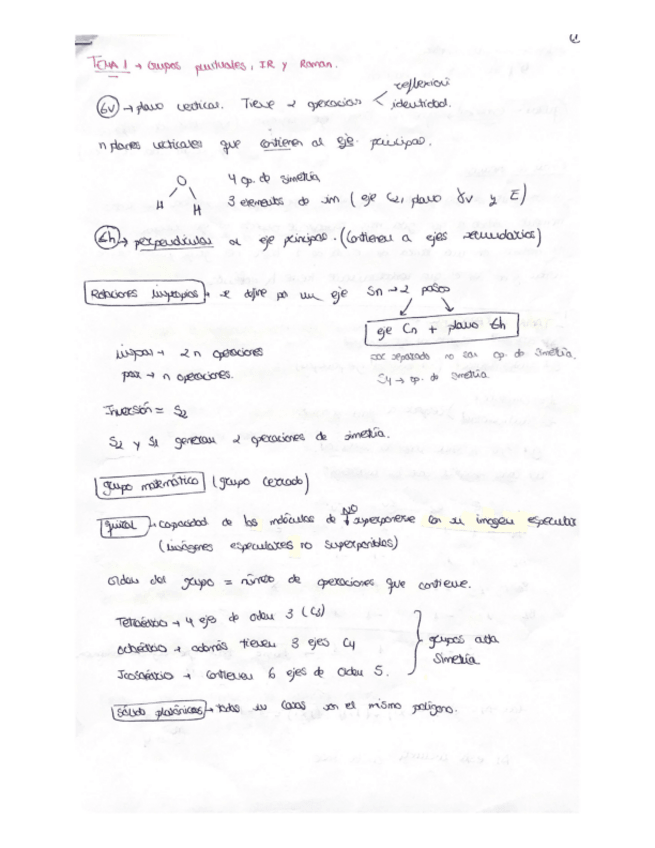 TEMA 1 → Grupos puntuales, IR y Raman.
reflexión
σv → plano vertical. Tiene 2 operaciones < identidad.
n planos verticales que contienen al eje principal.
O
H H
4 op. de simetría
3 elementos de sim (eje C2, plano σv y E)
σh → perpendicular al eje principal. (Contienen a ejes secundarios)
Rotaciones impropias → se define por un eje Sn → 2 pasos
eje Cn + plano σh
impar → 2n operaciones
par → n operaciones.
por separado no son op. de simetría.
S4 → op. de simetría
Inversión = S2
S2 y S1 generan 2 operaciones de simetría.
grupo matemático (grupo cerrado)
quiral → capacidad de las moléculas de NO superponerse con su imagen especular
(imágenes especulares no superponibles)
Orden del grupo = número de operaciones que contiene.
Tetraédrico → 4 eje de orden 3 (C3)
octaédrico → además tienen 3 ejes C4
Icosaédrico → contienen 6 ejes de orden 5.
grupos alta
simetría
sólido platónicos → todas su caras son el mismo polígono.